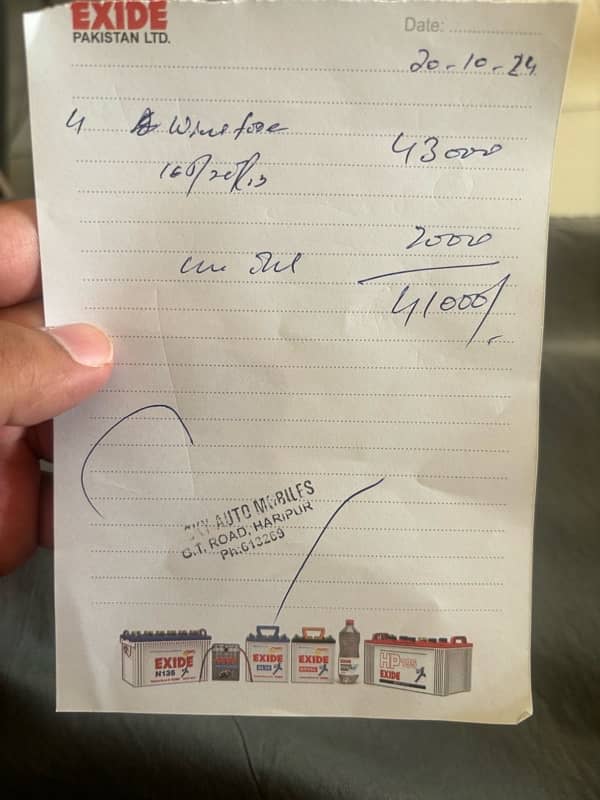 EXIDE
PAKISTAN LTD.
Date: ....................
20-10-24
4 Winsfore 43000
2000
41000/.
SKY AUTO MOBILES
G.T. ROAD, HARIPUR
Ph:613269
EXIDE
N135
EXIDE
EXIDE
HP
EXIDE